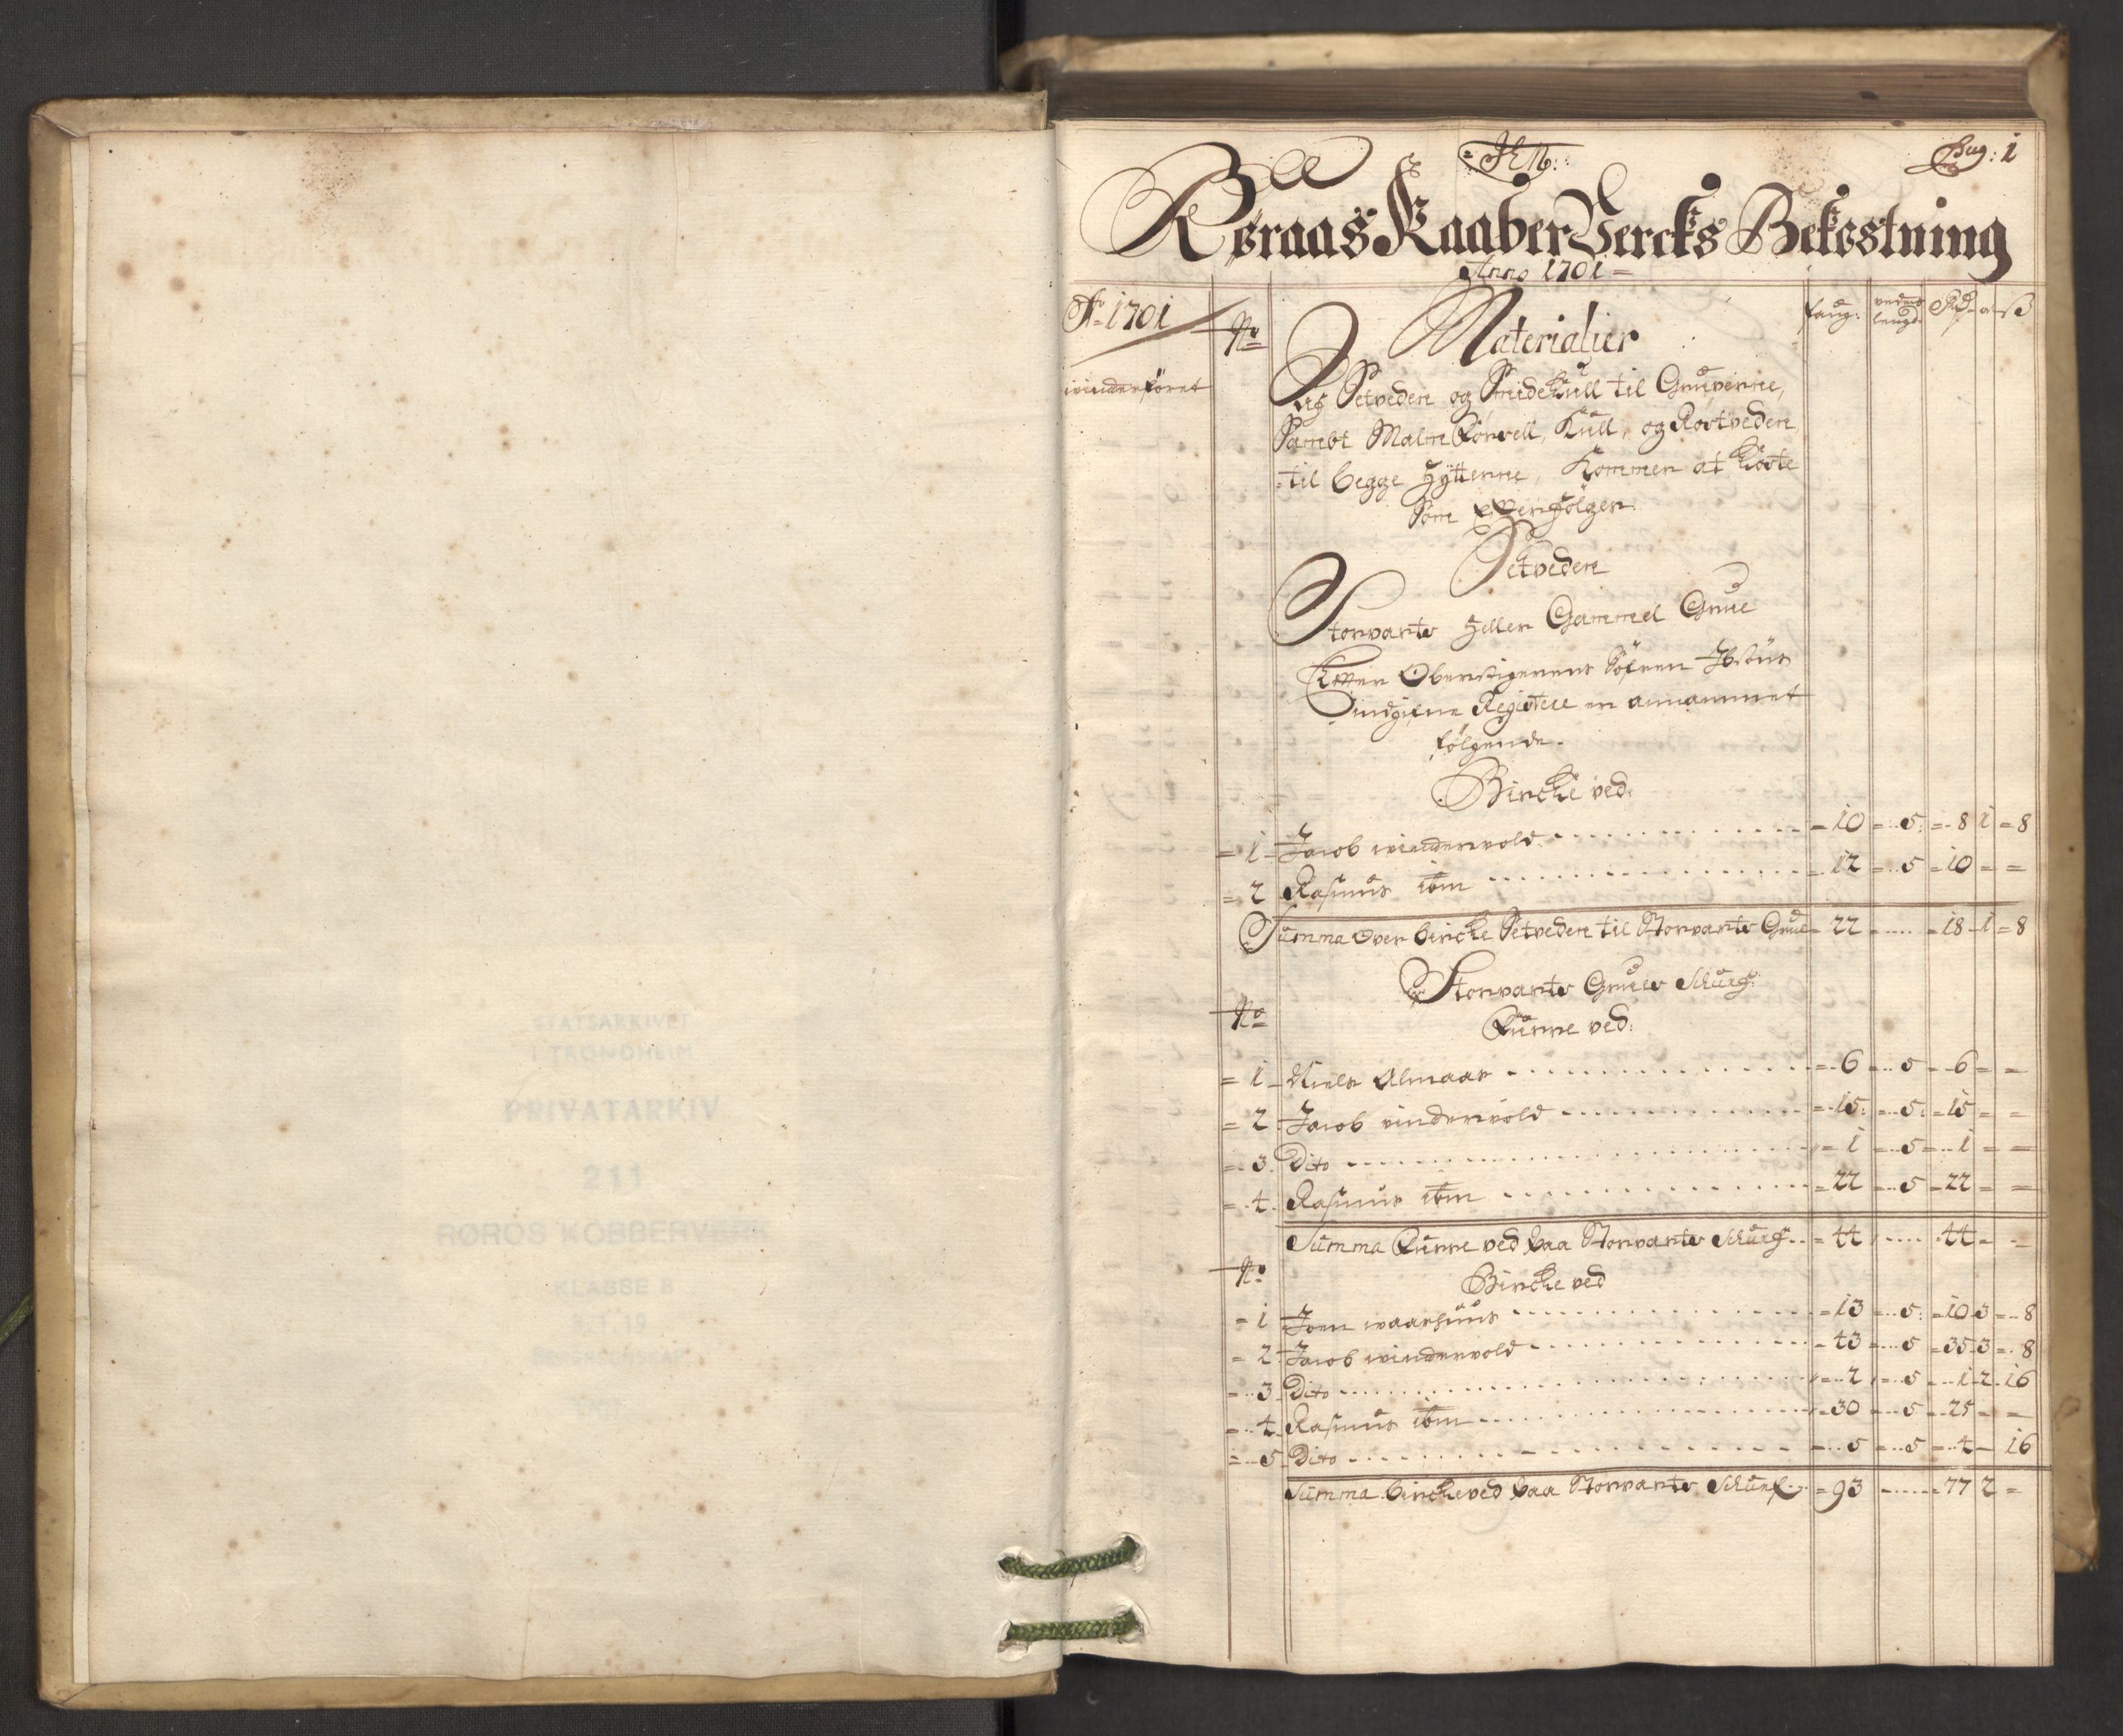 STATSARKIVET
I TRONDHEIM
PRIVATARKIV
211
RØROS KOBBERVERK
KLASSE 8
8. 1 19
Pag: 1
Røraas Kaaber Vercks Bekostning
Anno 1701
Ao 1701
No Materialier favg: vedens lengd Rd ort ß
winterføret
Aff Setveden og Smidekull til Gruverne,
Sambt Malm Kørsell, Kull, og Rostveden
til begge Hytterne, Kommer at Koste
Som Efterfølger.
Setveden
Storvarts Heller Gammel Grue
Efter Oberstigerens Søfren Ibsøns
indgifne Registere er annammet
følgende.
Bircke ved:
1 Jacob wintervold 10 5 8 1 8
2 Rasmus ibm 12 5 10
Summa Over bircke Setveden til Storvarts Grue 22 18 1 8
Storvarts Grues Schurf
No
Furre ved:
1 Niels Almaas 6 5 6
2 Jacob vintervold 15 5 15
3 Dito 1 5 1
4 Rasmus ibm 22 5 22
Summa Furre ved paa Storvarts Schurf 44 44
No Bircke ved
1 Joen waarhuus 13 5 10 3 8
2 Jacob wintervold 43 5 35 3 8
3 Dito 2 5 1 2 16
4 Rasmus ibm 30 5 25
5 Dito 5 5 4 16
Summa bircke ved paa Storvarts Schurf 93 77 2